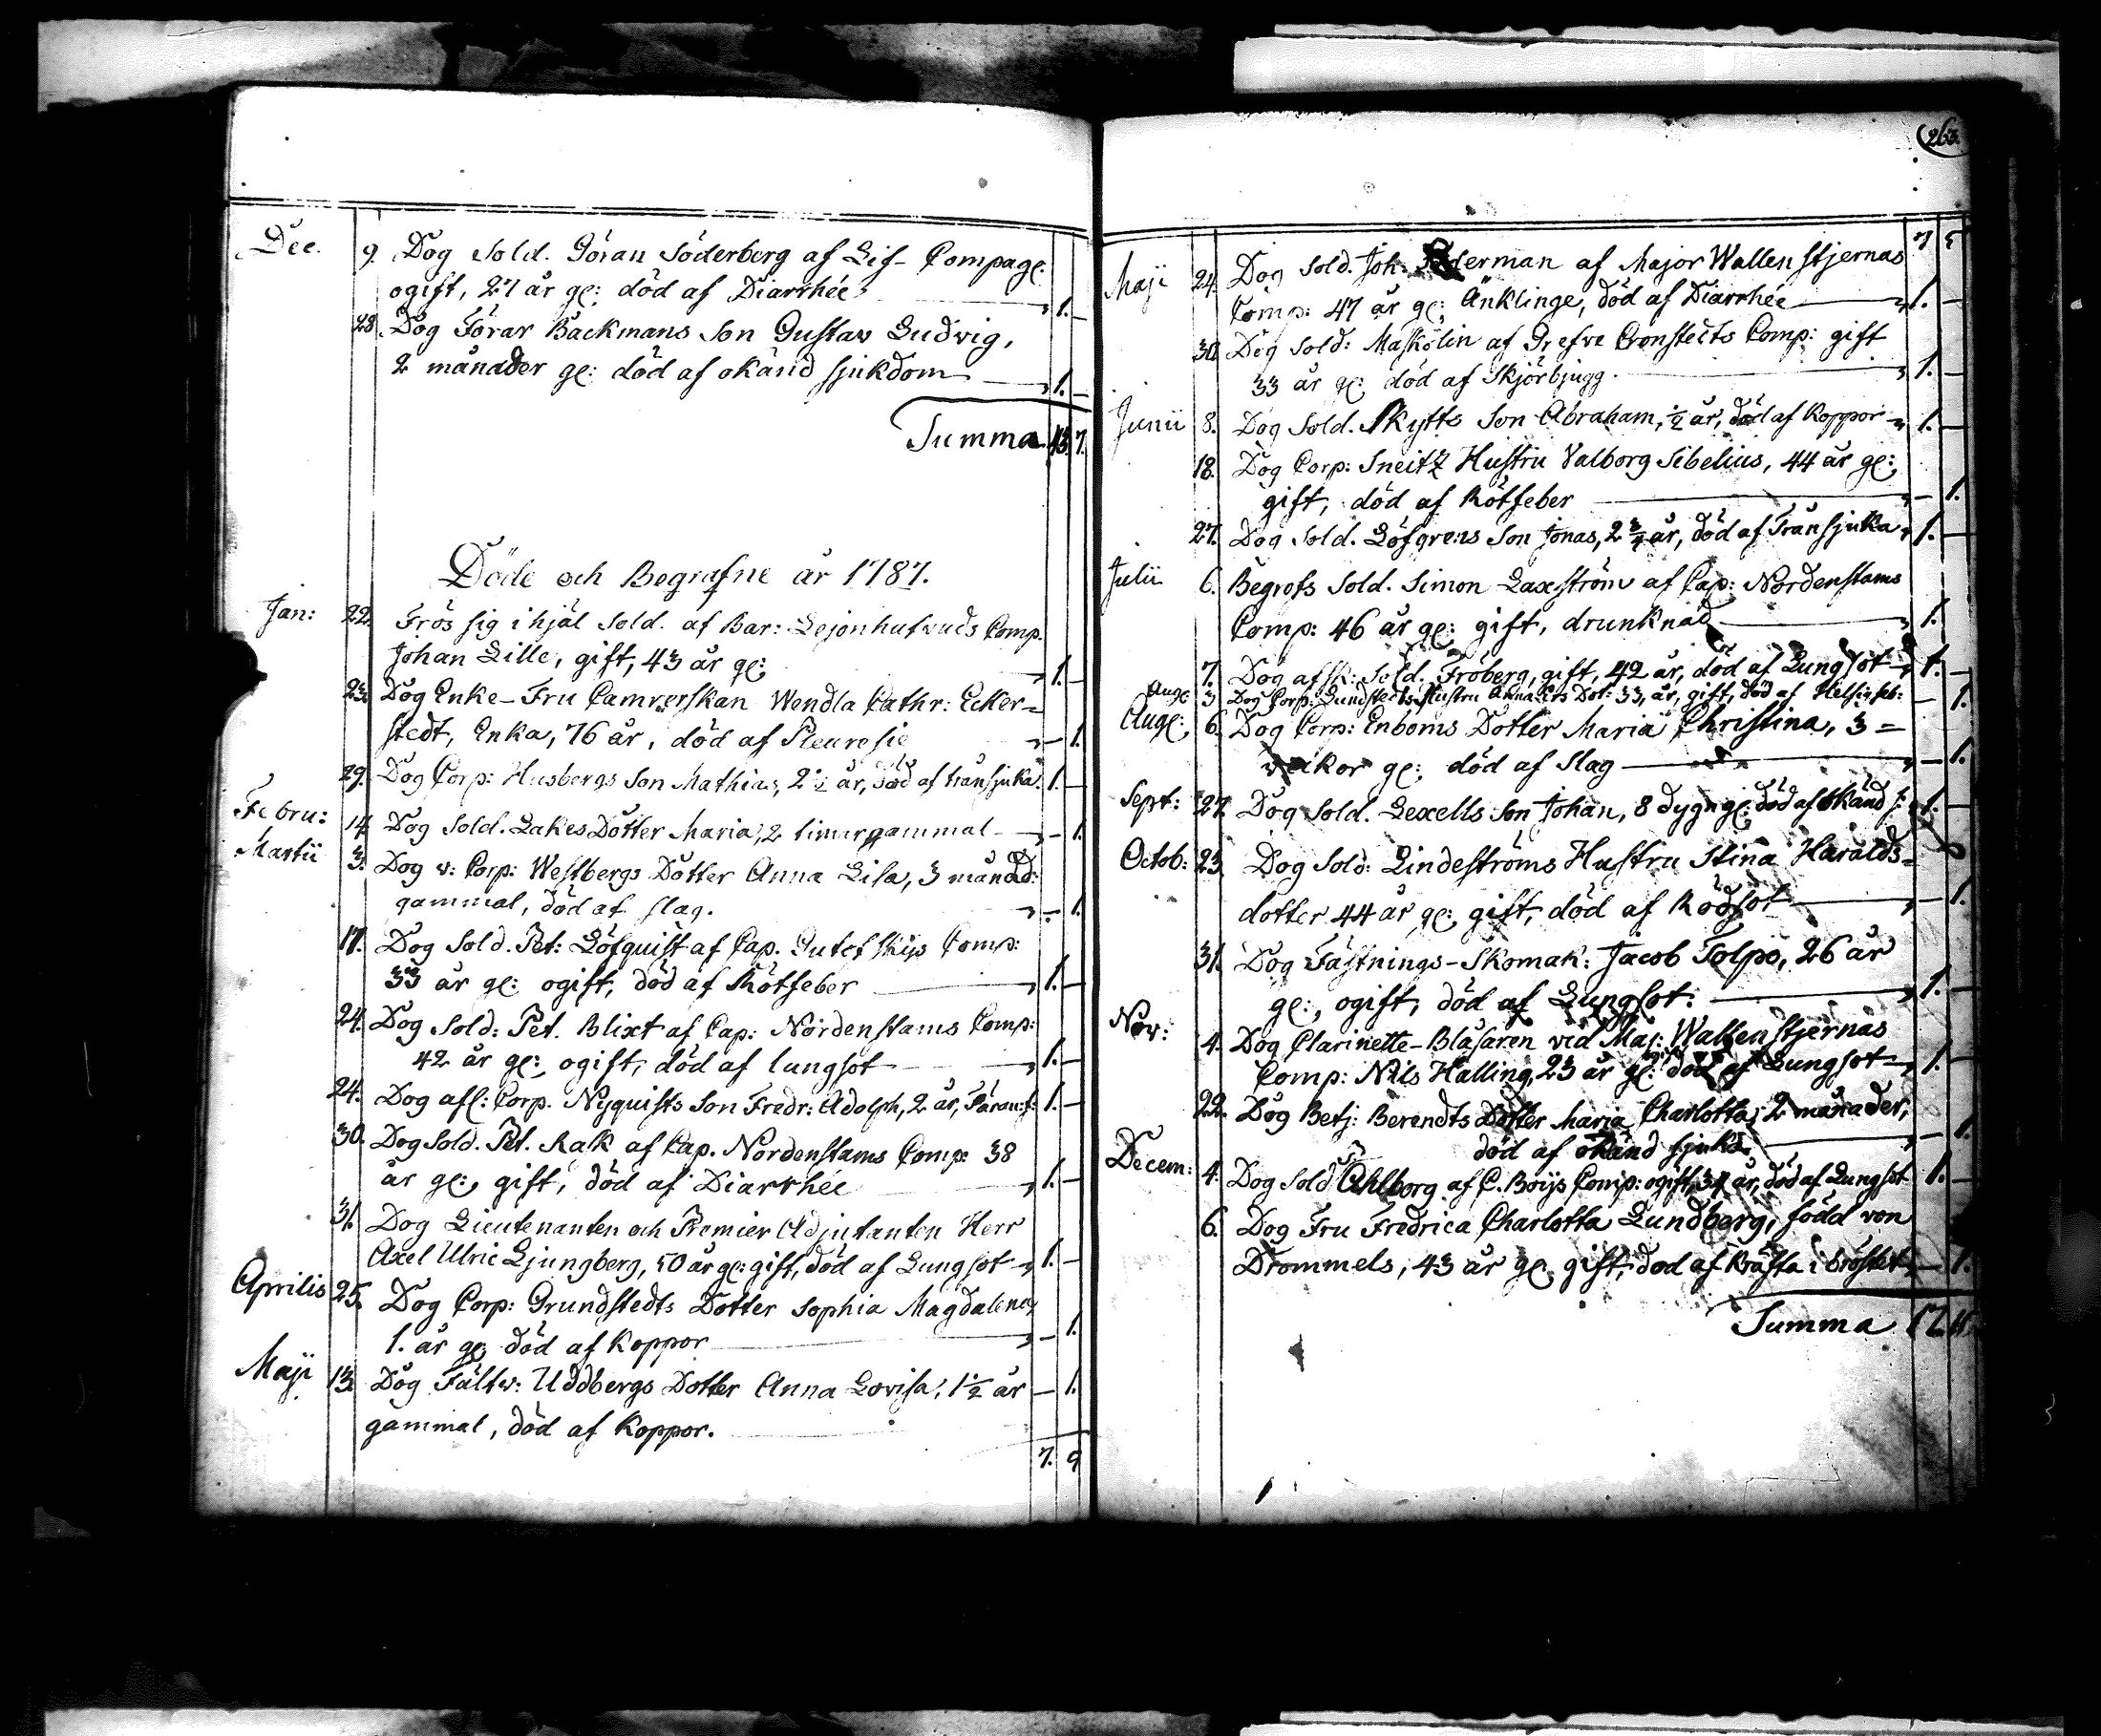 Dec. 9. Dog Sold. Göran Söderberg af Lif-Compage:
ogift, 27 år gl: död af Diarrhée 1. –
28. Dog Förar Backmans Son Gustav Ludvig,
2 månader gl: död af okänd sjukdom 1. –
Summa 13. 7.
Döde och Begrafne år 1787.
Jan: 22. Frös sig ihjäl Sold. af Bar: Lejonhufvuds Comp.
Johan Lille, gift, 43 år gl: 1. –
23. Dog Enke-Fru Camrerskan Wendla Cathr: Ecker=
stedt, Enka, 76 år, död af Pleuresie – 1.
29. Dog Corp: Husbergs Son Mathias, 2 1/2 år, död af transjuka. 1. –
Febru: 14. Dog Sold. Lakes Dotter Maria, 2 timar gammal – 1.
Martii 3. Dog v: Corp: Westbergs Dotter Anna Lisa, 3 månad:
gammal, död af slag. – 1.
17. Dog Sold. Pet: Löfquist af Cap. Comp:
33 år gl: ogift, död af Rötfeber 1. –
24. Dog Sold: Pet. Blixt af Cap: Nordenstams Comp:
42 år gl:, ogift, död af lungsot 1. –
24. Dog afs: Corp. Nyquists Son Fredr: Adolph, 2 år, 1. –
30. Dog Sold. Pet. Rak af Cap. Nordenstams Comp: 38
år gl:, gift, död af Diarrhée 1. –
31. Dog Lieutenanten och Premier Adjutanten Herr
Axel Ulric Ljungberg, 50 år gl: gift, död af Lungsot 1. –
Aprilis 25. Dog Corp: Grundstedts Dotter Sophia Magdalena,
1. år gl: död af Koppor – 1.
Maji 13. Dog Fältv: Uddbergs Dotter Anna Lovisa, 1 1/2 år – 1.
gammal, död af Koppor.
7. 9
263.
7 5
Maji 24. Dog Sold. Joh. af Major Wallenstjernas
Comp: 47 år gl: Änklinge, död af Diarrhée 1. –
30. Dog Sold: Maskolin af Grefve Cronstedts Comp: gift
33 år gl: död af Skjörbjugg. 1. –
Junii 8. Dog Sold. Skytts Son Abraham, 1/2 år, död af Koppor 1. –
18. Dog Corp: Sneitz Hustru Valborg Sibelius, 44 år gl:
gift, död af Rötfeber – 1.
27. Dog Sold. Löfgrens Son Jonas, 2 3/4 år, död af Transjuka 1. –
Julii 6. Begrofs Sold. Simon Laxström af Cap: Nordenstams
Comp: 46 år gl: gift, drunknad 1.
7. Dog afsk: Sold. Fröberg, gift, 42 år, död af Lungsot 1. –
Aug: 3 Dog Corp: Lundstedts Hustru Anna Ers Dot: 33, år, gift, död af – 1.
Aug: 6. Dog Corp: Enboms Dotter Maria Christina, 3 =
veikor gl: död af Slag – 1.
Sept: 27. Dog Sold. Lexells Son Johan, 8 dygn gl: död af okänd s: 1. –
Octob: 23. Dog Sold: Lindeströms Hustru Stina Haralds=
dotter 44 år gl: gift, död af Rödsot – 1.
31. Dog Fästnings-Skomak: Jacob Tolpo, 26 år
gl:, ogift, död af Lungsot: 1. –
Nov: 4. Dog Clarinette-Blåsaren vid Maj: Wallenstjernas
Comp: Nils Halling, 23 år gl: död af Lungsot 1. –
22. Dog Betj: Berendts Dotter Maria Charlotta, 2 månader,
död af okänd sjukd: – 1.
Decem: 4. Dog Sold Ahlborg af C. Boijs Comp: ogift, 34 år, död af Lungsot 1. –
6. Dog Fru Fredrica Charlotta Lundberg, född von
Drommels, 43 år gl: gift, död af Kräfta i bröstet – 1.
Summa 17. 11.